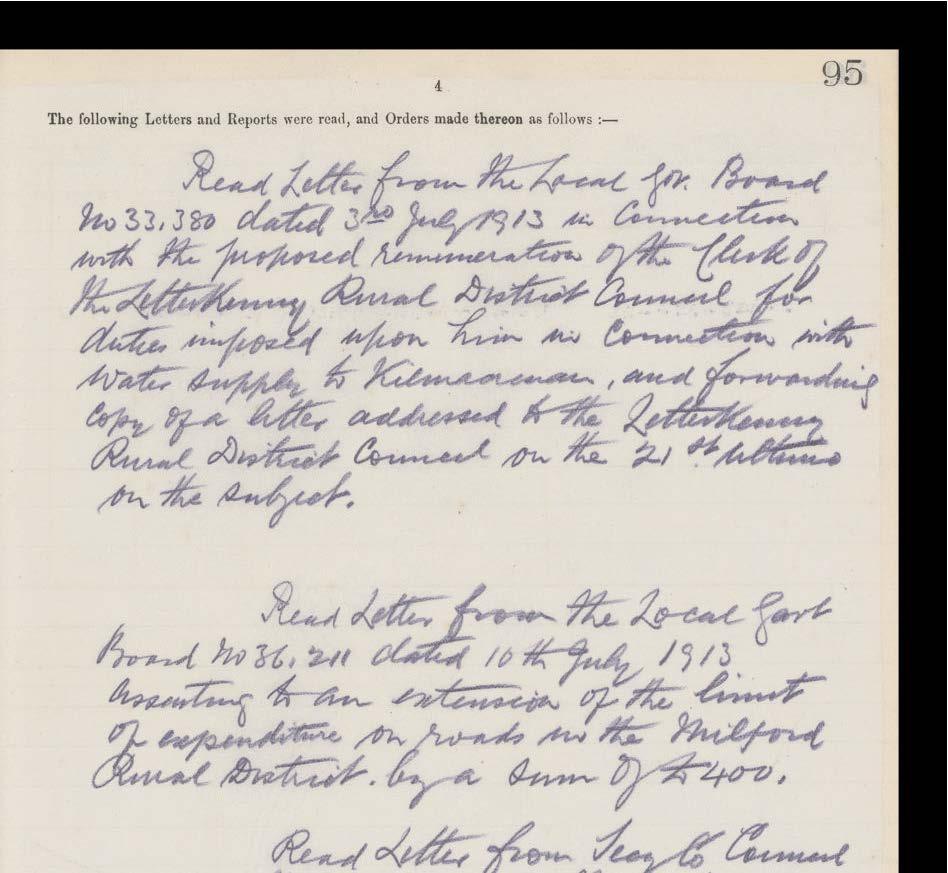 95
4
The following Letters and Reports were read, and Orders made thereon as follows :—
Read Letter from the Local Gov. Board
No 33,380 dated 3rd July 1913 in Connection
with the proposed remuneration of the Clerk of
the Letterkenny Rural District Council for
duties imposed upon him in Connection with
Water supply to Kilmacrenan, and forwarding
copy of a letter addressed to the Letterkenny
Rural District Council on the 21st ultimo
on the subject.
Read Letter from the Local Govt
Board No 36,211 dated 10th July 1913
assenting to an extension of the limit
of expenditure on roads in the Milford
Rural District. by a sum of £400.
Read Letter from Secy Co Council